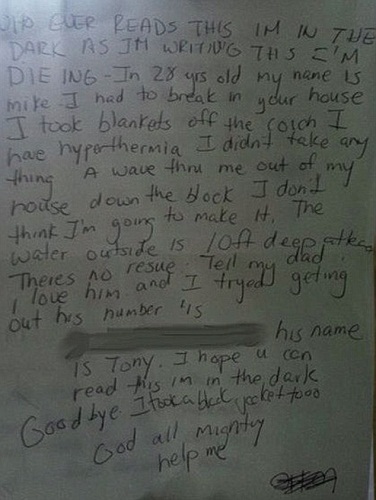 WHO EVER READS THIS IM IN THE
DARK AS IM WRITING THS I'M
DIE ING - In 28 yrs old my name is
mike I had to break in your house
I took blankets off the coich I
hae hyperthermia I didnt take any
thing A wave thru me out of my
house down the block I don't
think I'm going to make it. The
water outside is 10ft deep atleas
Theres no resue. Tell my dad
I love him and I tryed geting
out his number is
his name
is Tony. I hope u can
read this im in the dark
Good bye. I took a black jacket tooo
God all mighty
help me